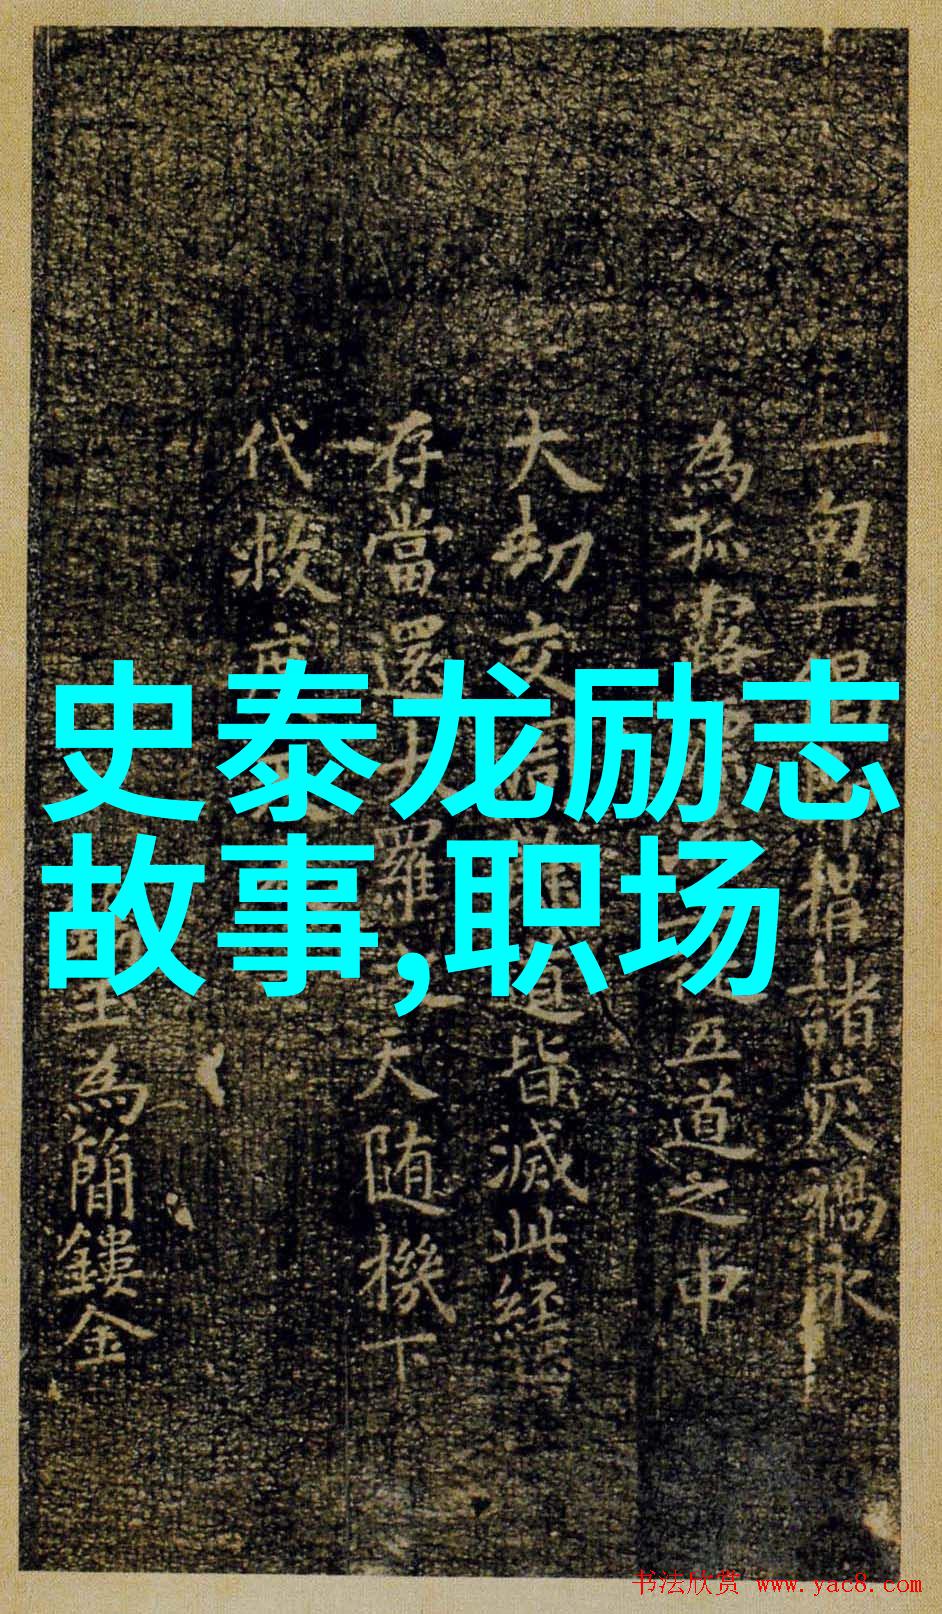 史泰龙励志
故事,职场
一句一偈
揩諸灾禍永
為孤露
五道之中
大劫交周
皆滅此經
存當還大羅之天随機下
代救度
為簡鏤金
书法欣赏 www.yac8.com